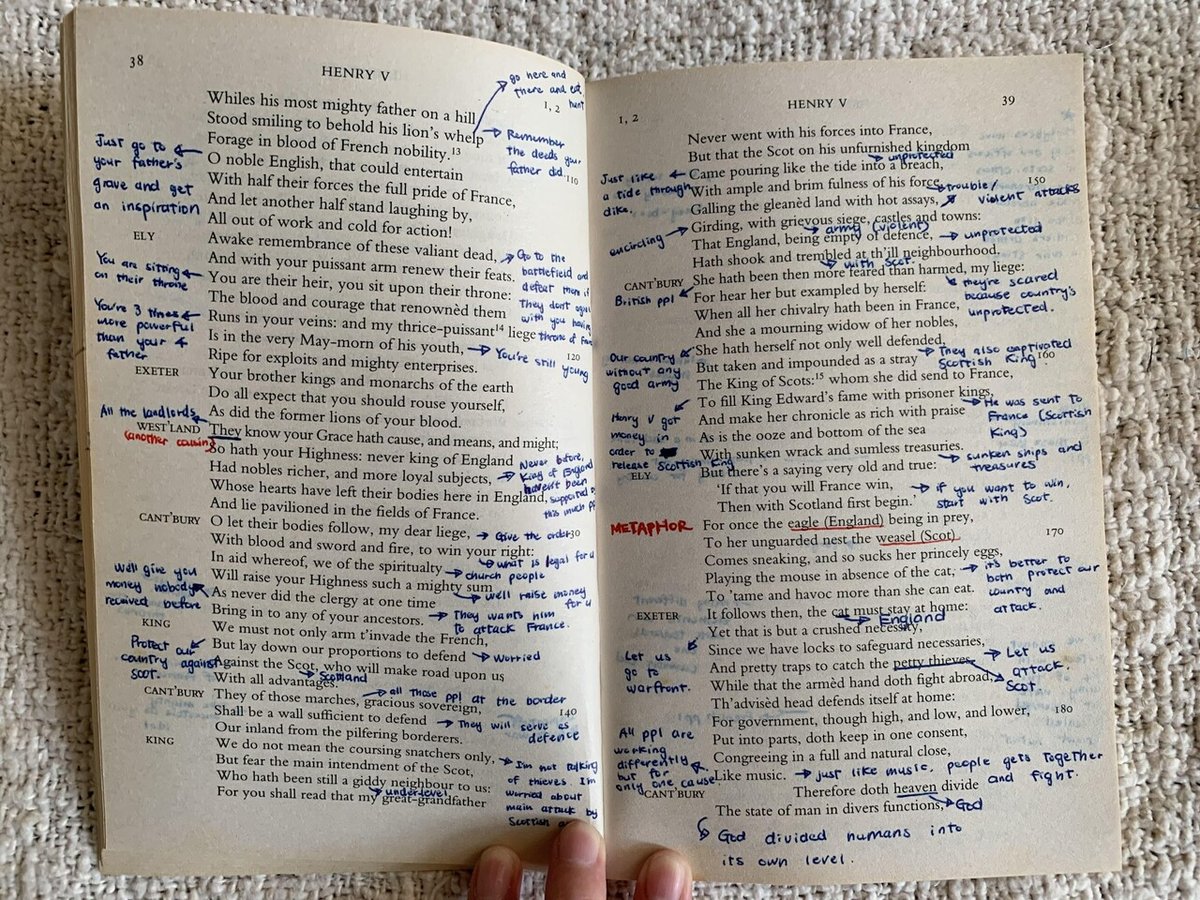 38
HENRY V
1, 2
go here and
there and eat
hunt
Whiles his most mighty father on a hill
Stood smiling to behold his lion's whelp
Forage in blood of French nobility.13
Remember
the deeds your
father did.
110
Just go to
your father's
grave and get
an inspiration
O noble English, that could entertain
With half their forces the full pride of France,
And let another half stand laughing by,
All out of work and cold for action!
ELY
Awake remembrance of these valiant dead,
And with your puissant arm renew their feats.
Go to the
battlefield and
defeat them if
They don't agree
with you having
throne of
You are sitting
on their throne
You are their heir, you sit upon their throne:
The blood and courage that renownèd them
You're 3 times
more powerful
than your
father
Runs in your veins: and my thrice-puissant14 liege
Is in the very May-morn of his youth,
You're still
young
120
Ripe for exploits and mighty enterprises.
EXETER
Your brother kings and monarchs of the earth
Do all expect that you should rouse yourself,
As did the former lions of your blood.
All the landlords
WEST'LAND
(another cousin)
They know your Grace hath cause, and means, and might;
So hath your Highness: never king of England
Had nobles richer, and more loyal subjects,
Never before,
King of England
haven't been
supported
this much
Whose hearts have left their bodies here in England,
And lie pavilioned in the fields of France.
CANT'BURY
O let their bodies follow, my dear liege,
Give the order
130
With blood and sword and fire, to win your right:
what is legal for u
In aid whereof, we of the spiritualty
church people
Will raise your Highness such a mighty sum
we'll raise money
for u
We'll give you
money nobody
received before
As never did the clergy at one time
Bring in to any of your ancestors.
They wants him
to attack France.
KING
We must not only arm t'invade the French,
But lay down our proportions to defend
worried
Protect our
country against
scot.
Against the Scot, who will make road upon us
Scotland
With all advantages.
CANT'BURY
They of those marches, gracious sovereign,
all those ppl at the border
140
Shall be a wall sufficient to defend
They will serve as
defence
Our inland from the pilfering borderers.
KING
We do not mean the coursing snatchers only,
But fear the main intendment of the Scot,
I'm not talking
of thieves. I'm
worried about
main attack by
Scottish
Who hath been still a giddy neighbour to us:
underlevel
For you shall read that my great-grandfather
1, 2
HENRY V
39
Never went with his forces into France,
But that the Scot on his unfurnished kingdom
unprotected
Just like
a tide through
dike.
Came pouring like the tide into a breach,
With ample and brim fulness of his force,
150
trouble/
violent attacks
Galling the gleanèd land with hot assays,
encircling
Girding, with grievous siege, castles and towns:
army (violent)
That England, being empty of defence,
unprotected
Hath shook and trembled at th'ill neighbourhood.
with Scot.
CANT'BURY
She hath been then more feared than harmed, my liege:
they're scared
because country's
unprotected.
British ppl
For hear her but exampled by herself:
When all her chivalry hath been in France,
And she a mourning widow of her nobles,
Our country
without any
good army
She hath herself not only well defended,
But taken and impounded as a stray
They also captivated
Scottish King
160
The King of Scots:15 whom she did send to France,
To fill King Edward's fame with prisoner kings,
He was sent to
France (Scottish
King)
Henry V got
money in
order to
release Scottish King
And make her chronicle as rich with praise
As is the ooze and bottom of the sea
With sunken wrack and sumless treasuries.
sunken ships and
treasures
ELY
But there's a saying very old and true:
'If that you will France win,
Then with Scotland first begin.'
if you want to win,
start with Scot.
METAPHOR
For once the eagle (England) being in prey,
170
To her unguarded nest the weasel (Scot)
Comes sneaking, and so sucks her princely eggs,
Playing the mouse in absence of the cat,
it's better to
both protect our
country and
attack.
To 'tame and havoc more than she can eat.
EXETER
It follows then, the cat must stay at home:
England
Yet that is but a crushed necessity,
Let us
go to
warfront.
Since we have locks to safeguard necessaries,
And pretty traps to catch the petty thieves.
Let us
attack
Scot.
While that the armèd hand doth fight abroad,
Th'advisèd head defends itself at home:
For government, though high, and low, and lower,
180
All ppl are
working
differently
but for
only one cause
Put into parts, doth keep in one consent,
Congreeing in a full and natural close,
Like music.
just like music, people gets together
and fight.
CANT'BURY
Therefore doth heaven divide
The state of man in divers functions,
God
God divided humans into
its own level.